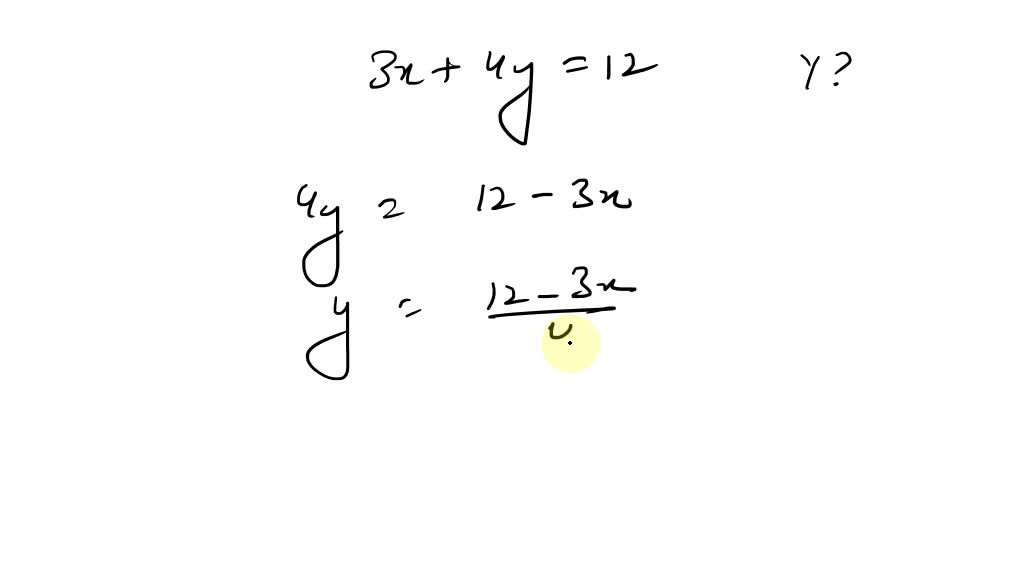 3x + 4y = 12 y?
4y = 12 - 3x
y = 12 - 3x / 4